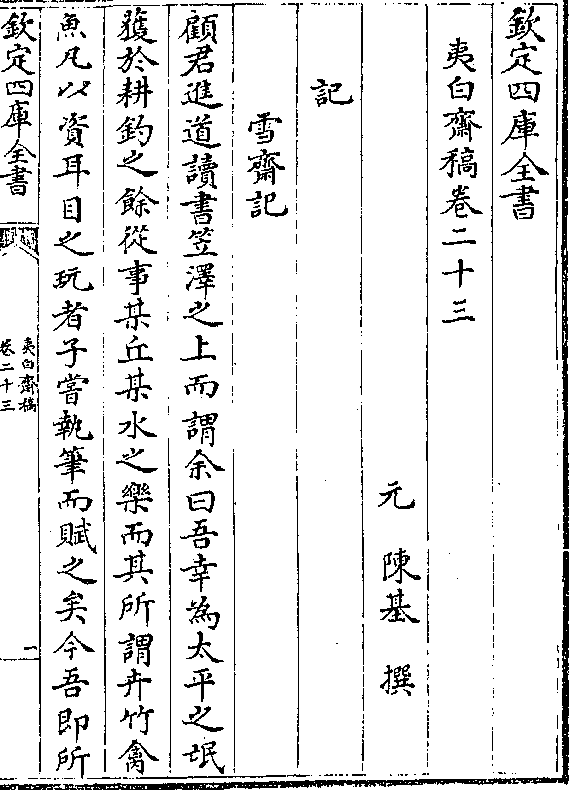 欽定四庫全書
夷白齋稿卷二十三
元 陳基 撰
記
雪齋記
顧君進道讀書笠澤之上而謂余曰吾幸為太平之氓
獲於耕釣之餘從事某丘某水之樂而其所謂卉竹禽
魚凡以資耳目之玩者子嘗執筆而賦之矣今吾即所
欽定四庫全書
夷白齋稿
卷二十三
一